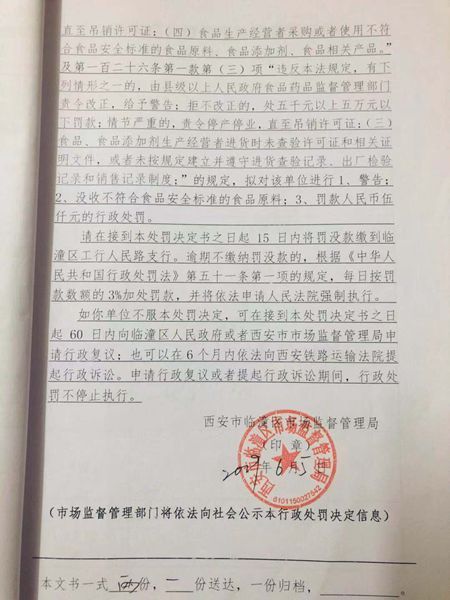 直至吊销许可证：（四）食品生产经营者采购或者使用不符
合食品安全标准的食品原料、食品添加剂、食品相关产品。”
及第一百二十六条第一款第（三）项“违反本法规定，有下
列情形之一的，由县级以上人民政府食品药品监督管理部门
责令改正，给予警告；拒不改正的，处五千元以上五万元以
下罚款；情节严重的，责令停产停业，直至吊销许可证：（三）
食品、食品添加剂生产经营者进货时未查验许可证和相关证
明文件，或者未按规定建立并遵守进货查验记录、出厂检验
记录和销售记录制度；”的规定，拟对该单位进行 1、警告；
2、没收不符合食品安全标准的食品原料；3、罚款人民币伍
仟元的行政处罚。
请在接到本处罚决定书之日起 15 日内将罚没款缴到临
潼区工行人民路支行。逾期不缴纳罚没款的，根据《中华人
民共和国行政处罚法》第五十一条第一项的规定，每日按罚
款数额的 3%加处罚款，并将依法申请人民法院强制执行。
如你单位不服本处罚决定，可在接到本处罚决定书之日
起 60 日内向临潼区人民政府或者西安市市场监督管理局申
请行政复议；也可以在 6 个月内依法向西安铁路运输法院提
起行政诉讼。申请行政复议或者提起行政诉讼期间，行政处
罚不停止执行。
西安市临潼区市场监督管理局
（印 章）
2019年6月5日
西安市临潼区市场监督管理局
6101150027642
（市场监督管理部门将依法向社会公示本行政处罚决定信息）
本文书一式 两 份，二 份送达，一份归档，